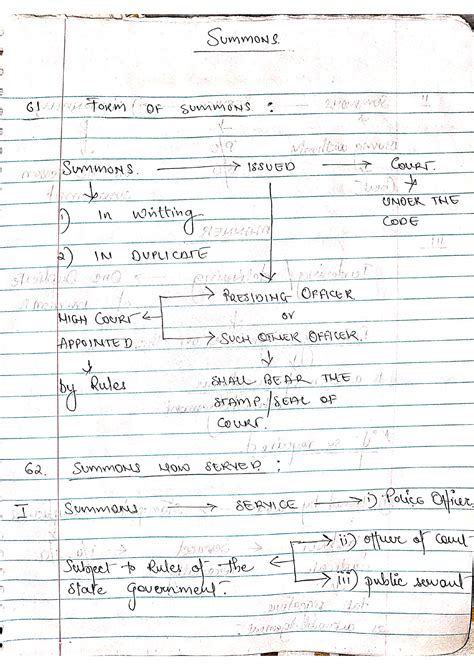 Summons.
61. Form of summons :
Summons. → Issued → Court.
1) In writting
under the
code
2) In duplicate
→ Presiding Officer
High Court ← or
Appointed → Such other officer.
by Rules
shall bear the
stamp/seal of
court.
62. Summons how served :
I Summons → service → i) Police Officer
Subject to Rules of the ← → ii) officer of court
State Government. → iii) public servant